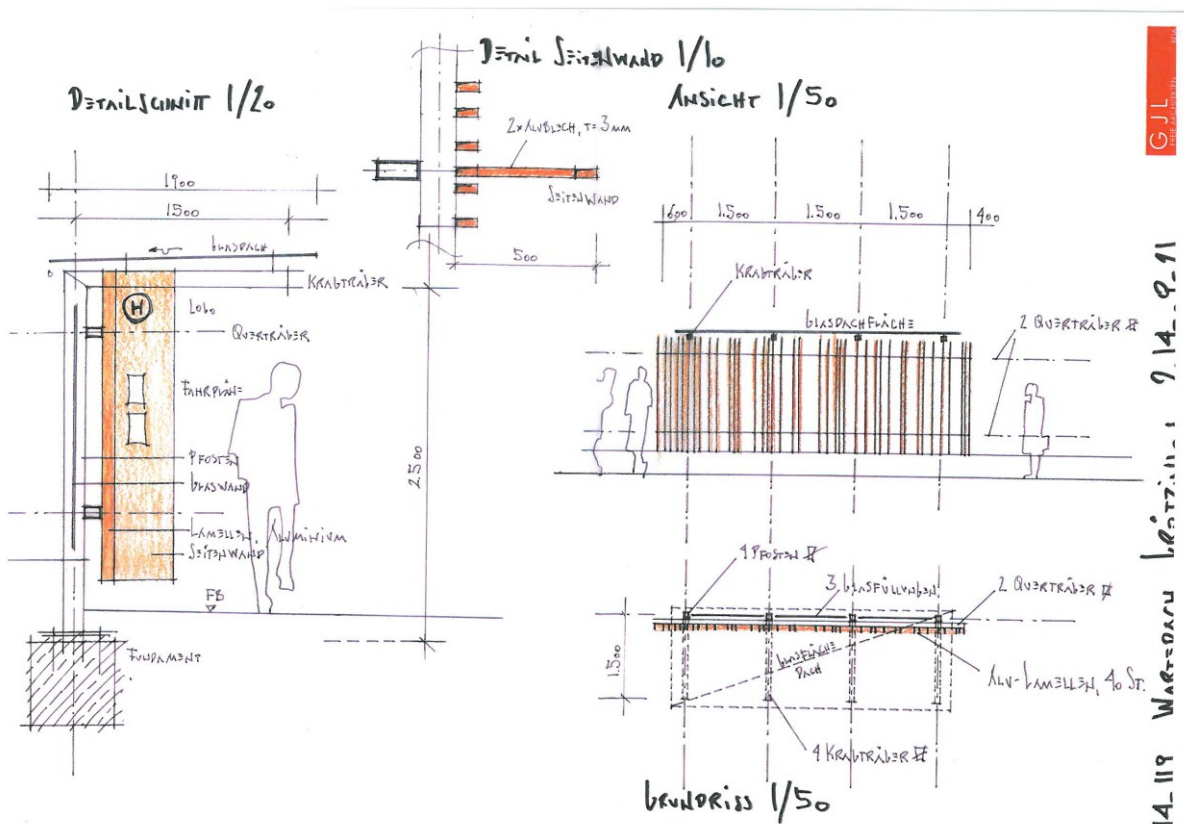 DETAILSCHNITT 1/20
1900
1500
GLASDACH
KRAGTRÄGER
H
LOGO
QUERTRÄGER
FAHRPLÄNE
PFOSTEN
GLASWAND
LAMELLEN, ALUMINIUM
SEITENWAND
2500
FB
FUNDAMENT
DETAIL SEITENWAND 1/10
2x ALUBLECH, T=3MM
SEITENWAND
500
ANSICHT 1/50
600 1.500 1.500 1.500 400
KRAGTRÄGER
GLASDACHFLÄCHE
2 QUERTRÄGER
4 PFOSTEN
3 GLASFÜLLUNGEN
2 QUERTRÄGER
1.500
GLASFLÄCHE
DACH
ALU-LAMELLEN, 40 ST.
4 KRAGTRÄGER
GRUNDRISS 1/50
GJL
FREIE ARCHITEKTEN
14_119 WARTEDACH